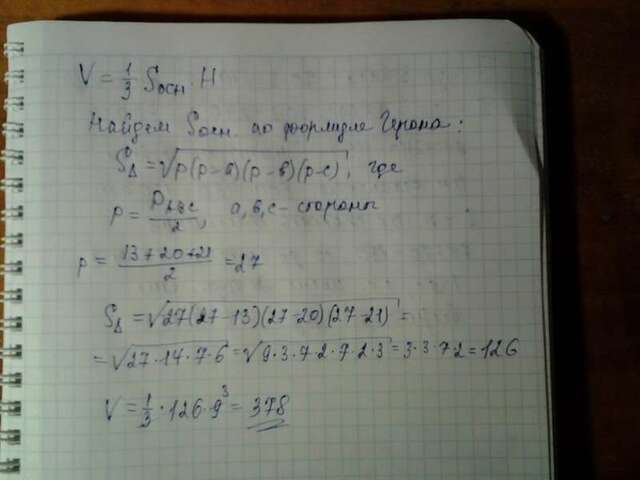 V = 1/3 Sосн · H
Найдем Sосн по формуле Герона:
S△ = √p(p-a)(p-b)(p-c), где
p = PABC/2, a, b, c - стороны
p = 13+20+21/2 = 27
S△ = √27(27-13)(27-20)(27-21) =
= √27·14·7·6 = √9·3·7·2·7·2·3 = 3·3·7·2 = 126
V = 1/3 · 126 · 9³ = 378